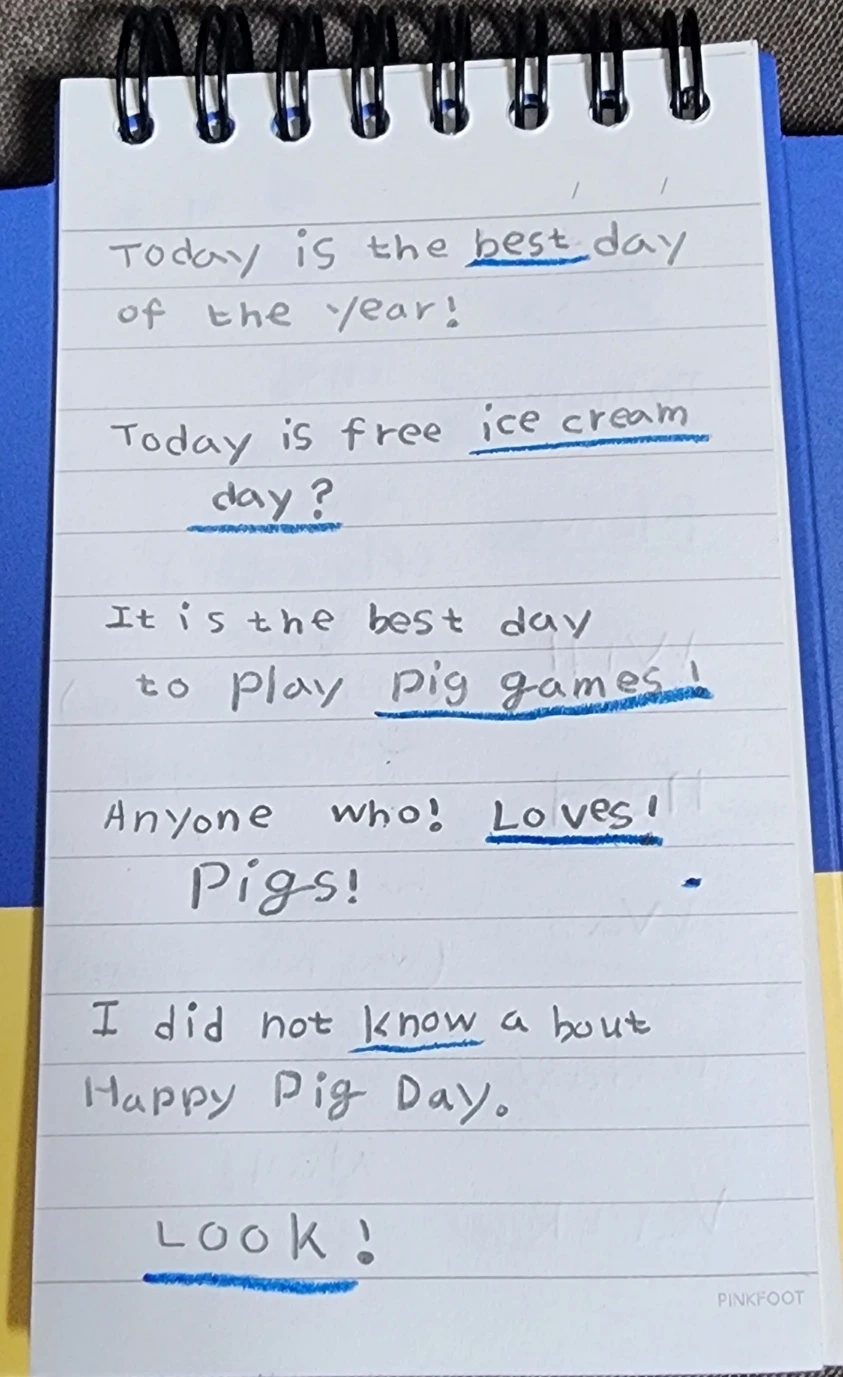 Today is the best day
of the year!
Today is free ice cream
day?
It is the best day
to play pig games!
Anyone who! Loves!
Pigs!
I did not know a bout
Happy Pig Day.
LOOK!
PINKFOOT